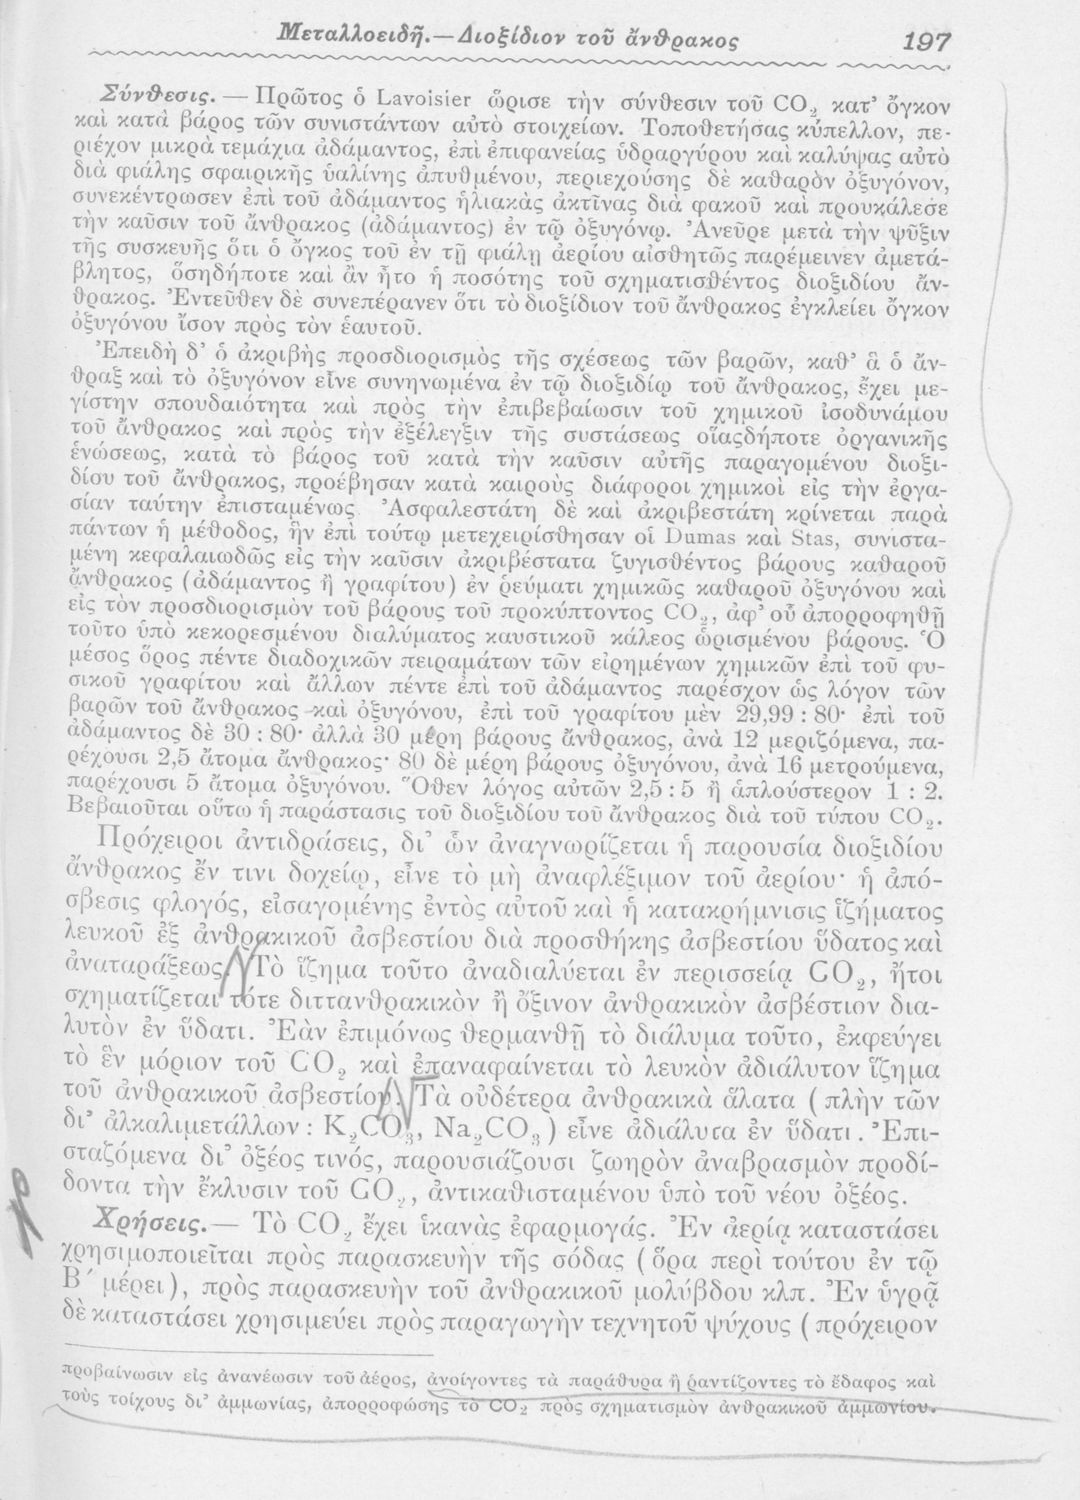 Μεταλλοειδῆ.—Διοξίδιον τοῦ ἄνθρακος 197
Σύνθεσις. — Πρῶτος ὁ Lavoisier ὥρισε τὴν σύνθεσιν τοῦ CO₂ κατ' ὄγκον
καὶ κατὰ βάρος τῶν συνιστάντων αὐτὸ στοιχείων. Τοποθετήσας κύπελλον, πε-
ριέχον μικρὰ τεμάχια ἀδάμαντος, ἐπὶ ἐπιφανείας ὑδραργύρου καὶ καλύψας αὐτὸ
διὰ φιάλης σφαιρικῆς ὑαλίνης ἀπυθμένου, περιεχούσης δὲ καθαρὸν ὀξυγόνον,
συνεκέντρωσεν ἐπὶ τοῦ ἀδάμαντος ἡλιακὰς ἀκτῖνας διὰ φακοῦ καὶ προυκάλεσε
τὴν καῦσιν τοῦ ἄνθρακος (ἀδάμαντος) ἐν τῷ ὀξυγόνῳ. Ἀνεῦρε μετὰ τὴν ψῦξιν
τῆς συσκευῆς ὅτι ὁ ὄγκος τοῦ ἐν τῇ φιάλῃ ἀερίου αἰσθητῶς παρέμεινεν ἀμετά-
βλητος, ὁσηδήποτε καὶ ἂν ἦτο ἡ ποσότης τοῦ σχηματισθέντος διοξιδίου ἄν-
θρακος. Ἐντεῦθεν δὲ συνεπέρανεν ὅτι τὸ διοξίδιον τοῦ ἄνθρακος ἐγκλείει ὄγκον
ὀξυγόνου ἴσον πρὸς τὸν ἑαυτοῦ.
Ἐπειδὴ δ' ὁ ἀκριβὴς προσδιορισμὸς τῆς σχέσεως τῶν βαρῶν, καθ' ἃ ὁ ἄν-
θραξ καὶ τὸ ὀξυγόνον εἶνε συνηνωμένα ἐν τῷ διοξιδίῳ τοῦ ἄνθρακος, ἔχει με-
γίστην σπουδαιότητα καὶ πρὸς τὴν ἐπιβεβαίωσιν τοῦ χημικοῦ ἰσοδυνάμου
τοῦ ἄνθρακος καὶ πρὸς τὴν ἐξέλεγξιν τῆς συστάσεως οἵαςδήποτε ὀργανικῆς
ἑνώσεως, κατὰ τὸ βάρος τοῦ κατὰ τὴν καῦσιν αὐτῆς παραγομένου διοξι-
δίου τοῦ ἄνθρακος, προέβησαν κατὰ καιροὺς διάφοροι χημικοὶ εἰς τὴν ἐργα-
σίαν ταύτην ἐπισταμένως. Ἀσφαλεστάτη δὲ καὶ ἀκριβεστάτη κρίνεται παρὰ
πάντων ἡ μέθοδος, ἣν ἐπὶ τούτῳ μετεχειρίσθησαν οἱ Dumas καὶ Stas, συνιστα-
μένη κεφαλαιωδῶς εἰς τὴν καῦσιν ἀκριβέστατα ζυγισθέντος βάρους καθαροῦ
ἄνθρακος (ἀδάμαντος ἢ γραφίτου) ἐν ῥεύματι χημικῶς καθαροῦ ὀξυγόνου καὶ
εἰς τὸν προσδιορισμὸν τοῦ βάρους τοῦ προκύπτοντος CO₂, ἀφ' οὗ ἀπορροφηθῇ
τοῦτο ὑπὸ κεκορεσμένου διαλύματος καυστικοῦ κάλεος ὡρισμένου βάρους. Ὁ
μέσος ὅρος πέντε διαδοχικῶν πειραμάτων τῶν εἰρημένων χημικῶν ἐπὶ τοῦ φυ-
σικοῦ γραφίτου καὶ ἄλλων πέντε ἐπὶ τοῦ ἀδάμαντος παρέσχον ὡς λόγον τῶν
βαρῶν τοῦ ἄνθρακος καὶ ὀξυγόνου, ἐπὶ τοῦ γραφίτου μὲν 29,99 : 80· ἐπὶ τοῦ
ἀδάμαντος δὲ 30 : 80· ἀλλὰ 30 μέρη βάρους ἄνθρακος, ἀνὰ 12 μεριζόμενα, πα-
ρέχουσι 2,5 ἄτομα ἄνθρακος· 80 δὲ μέρη βάρους ὀξυγόνου, ἀνὰ 16 μετρούμενα,
παρέχουσι 5 ἄτομα ὀξυγόνου. Ὅθεν λόγος αὐτῶν 2,5 : 5 ἢ ἁπλούστερον 1 : 2.
Βεβαιοῦται οὕτω ἡ παράστασις τοῦ διοξιδίου τοῦ ἄνθρακος διὰ τοῦ τύπου CO₂.
Πρόχειροι ἀντιδράσεις, δι' ὧν ἀναγνωρίζεται ἡ παρουσία διοξιδίου
ἄνθρακος ἔν τινι δοχείῳ, εἶνε τὸ μὴ ἀναφλέξιμον τοῦ ἀερίου· ἡ ἀπό-
σβεσις φλογός, εἰσαγομένης ἐντὸς αὐτοῦ καὶ ἡ κατακρήμνισις ἱζήματος
λευκοῦ ἐξ ἀνθρακικοῦ ἀσβεστίου διὰ προσθήκης ἀσβεστίου ὕδατος καὶ
ἀναταράξεως. Τὸ ἵζημα τοῦτο ἀναδιαλύεται ἐν περισσείᾳ CO₂, ἤτοι
σχηματίζεται τότε διττανθρακικὸν ἢ ὄξινον ἀνθρακικὸν ἀσβέστιον δια-
λυτὸν ἐν ὕδατι. Ἐὰν ἐπιμόνως θερμανθῇ τὸ διάλυμα τοῦτο, ἐκφεύγει
τὸ ἓν μόριον τοῦ CO₂ καὶ ἐπαναφαίνεται τὸ λευκὸν ἀδιάλυτον ἵζημα
τοῦ ἀνθρακικοῦ ἀσβεστίου. Τὰ οὐδέτερα ἀνθρακικὰ ἅλατα (πλὴν τῶν
δι' ἀλκαλιμετάλλων : K₂CO₃, Na₂CO₃) εἶνε ἀδιάλυτα ἐν ὕδατι. Ἐπι-
σταζόμενα δι' ὀξέος τινός, παρουσιάζουσι ζωηρὸν ἀναβρασμὸν προδί-
δοντα τὴν ἔκλυσιν τοῦ CO₂, ἀντικαθισταμένου ὑπὸ τοῦ νέου ὀξέος.
Χρήσεις.— Τὸ CO₂ ἔχει ἱκανὰς ἐφαρμογάς. Ἐν ἀερίᾳ καταστάσει
χρησιμοποιεῖται πρὸς παρασκευὴν τῆς σόδας (ὅρα περὶ τούτου ἐν τῷ
Β΄ μέρει), πρὸς παρασκευὴν τοῦ ἀνθρακικοῦ μολύβδου κλπ. Ἐν ὑγρᾷ
δὲ καταστάσει χρησιμεύει πρὸς παραγωγὴν τεχνητοῦ ψύχους (πρόχειρον
προβαίνωσιν εἰς ἀνανέωσιν τοῦ ἀέρος, ἀνοίγοντες τὰ παράθυρα ἢ ῥαντίζοντες τὸ ἔδαφος καὶ
τοὺς τοίχους δι' ἀμμωνίας, ἀπορροφώσης τὸ CO₂ πρὸς σχηματισμὸν ἀνθρακικοῦ ἀμμωνίου.